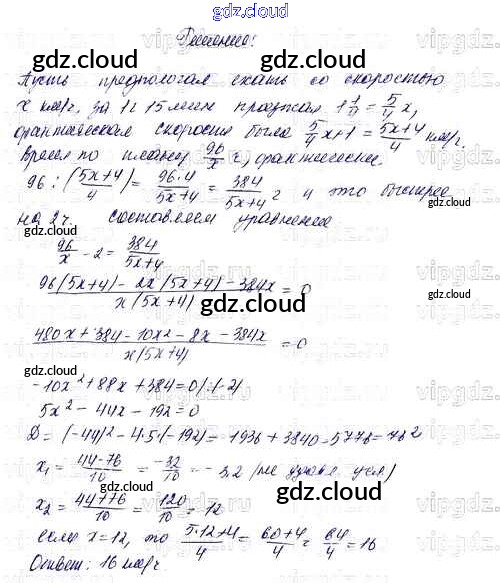 gdz.cloud
Решение:
gdz.cloud
Пусть предполагал ехать со скоростью
x км/ч, за 1ч 15мин проезжал 1 1/4 = 5/4 x,
фактическая скорость была 5/4 x+1 = (5x+4)/4 км/ч.
Время по плану 96/x ч, фактически
96 : (5x+4)/4 = 96·4/(5x+4) = 384/(5x+4) ч и это быстрее
на 2ч. составляем уравнение
96/x - 2 = 384/(5x+4)
(96(5x+4) - 2x(5x+4) - 384x)/(x(5x+4)) = 0
(480x + 384 - 10x² - 8x - 384x)/(x(5x+4)) = 0
-10x² + 88x + 384 = 0/:(-2)
5x² - 44x - 192 = 0
D = (-44)² - 4·5·(-192) = 1936 + 3840 = 5776 = 76²
x₁ = (44-76)/10 = -32/10 = -3,2 (не удовл. усл)
x₂ = (44+76)/10 = 120/10 = 12
если x = 12, то (5·12+4)/4 = (60+4)/4 = 64/4 = 16
Ответ: 16 км/ч